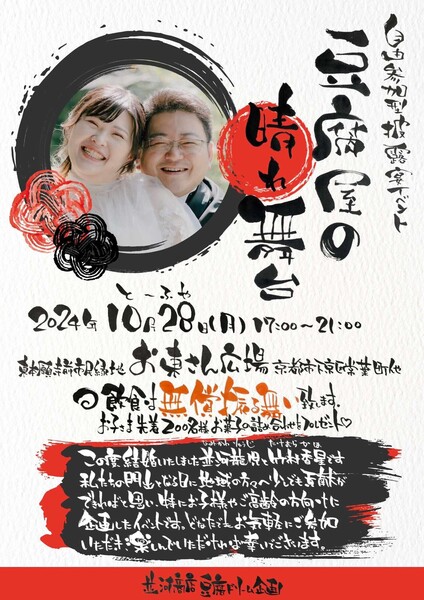 自由参加型披露宴イベント
豆腐屋の
晴れ舞台
とーふや
2024年10月28日(月) 17:00〜21:00
東本願寺前市民緑地 お東さん広場 京都市下京区常葉町他
飲食は無償振る舞い致します。
お子さま先着200名様お菓子の詰め合わせをプレゼント♡
この度結婚いたしました並河龍児と竹村香里です
私たちの門出となる日に地域の方々へ少しでも貢献が
できればと思い、特にお子様やご高齢の方向けに
企画したイベントです。どなたでもお気軽にご参加
いただき楽しんでいただければ幸いでございます。
並河商店 豆腐ドリーム企画